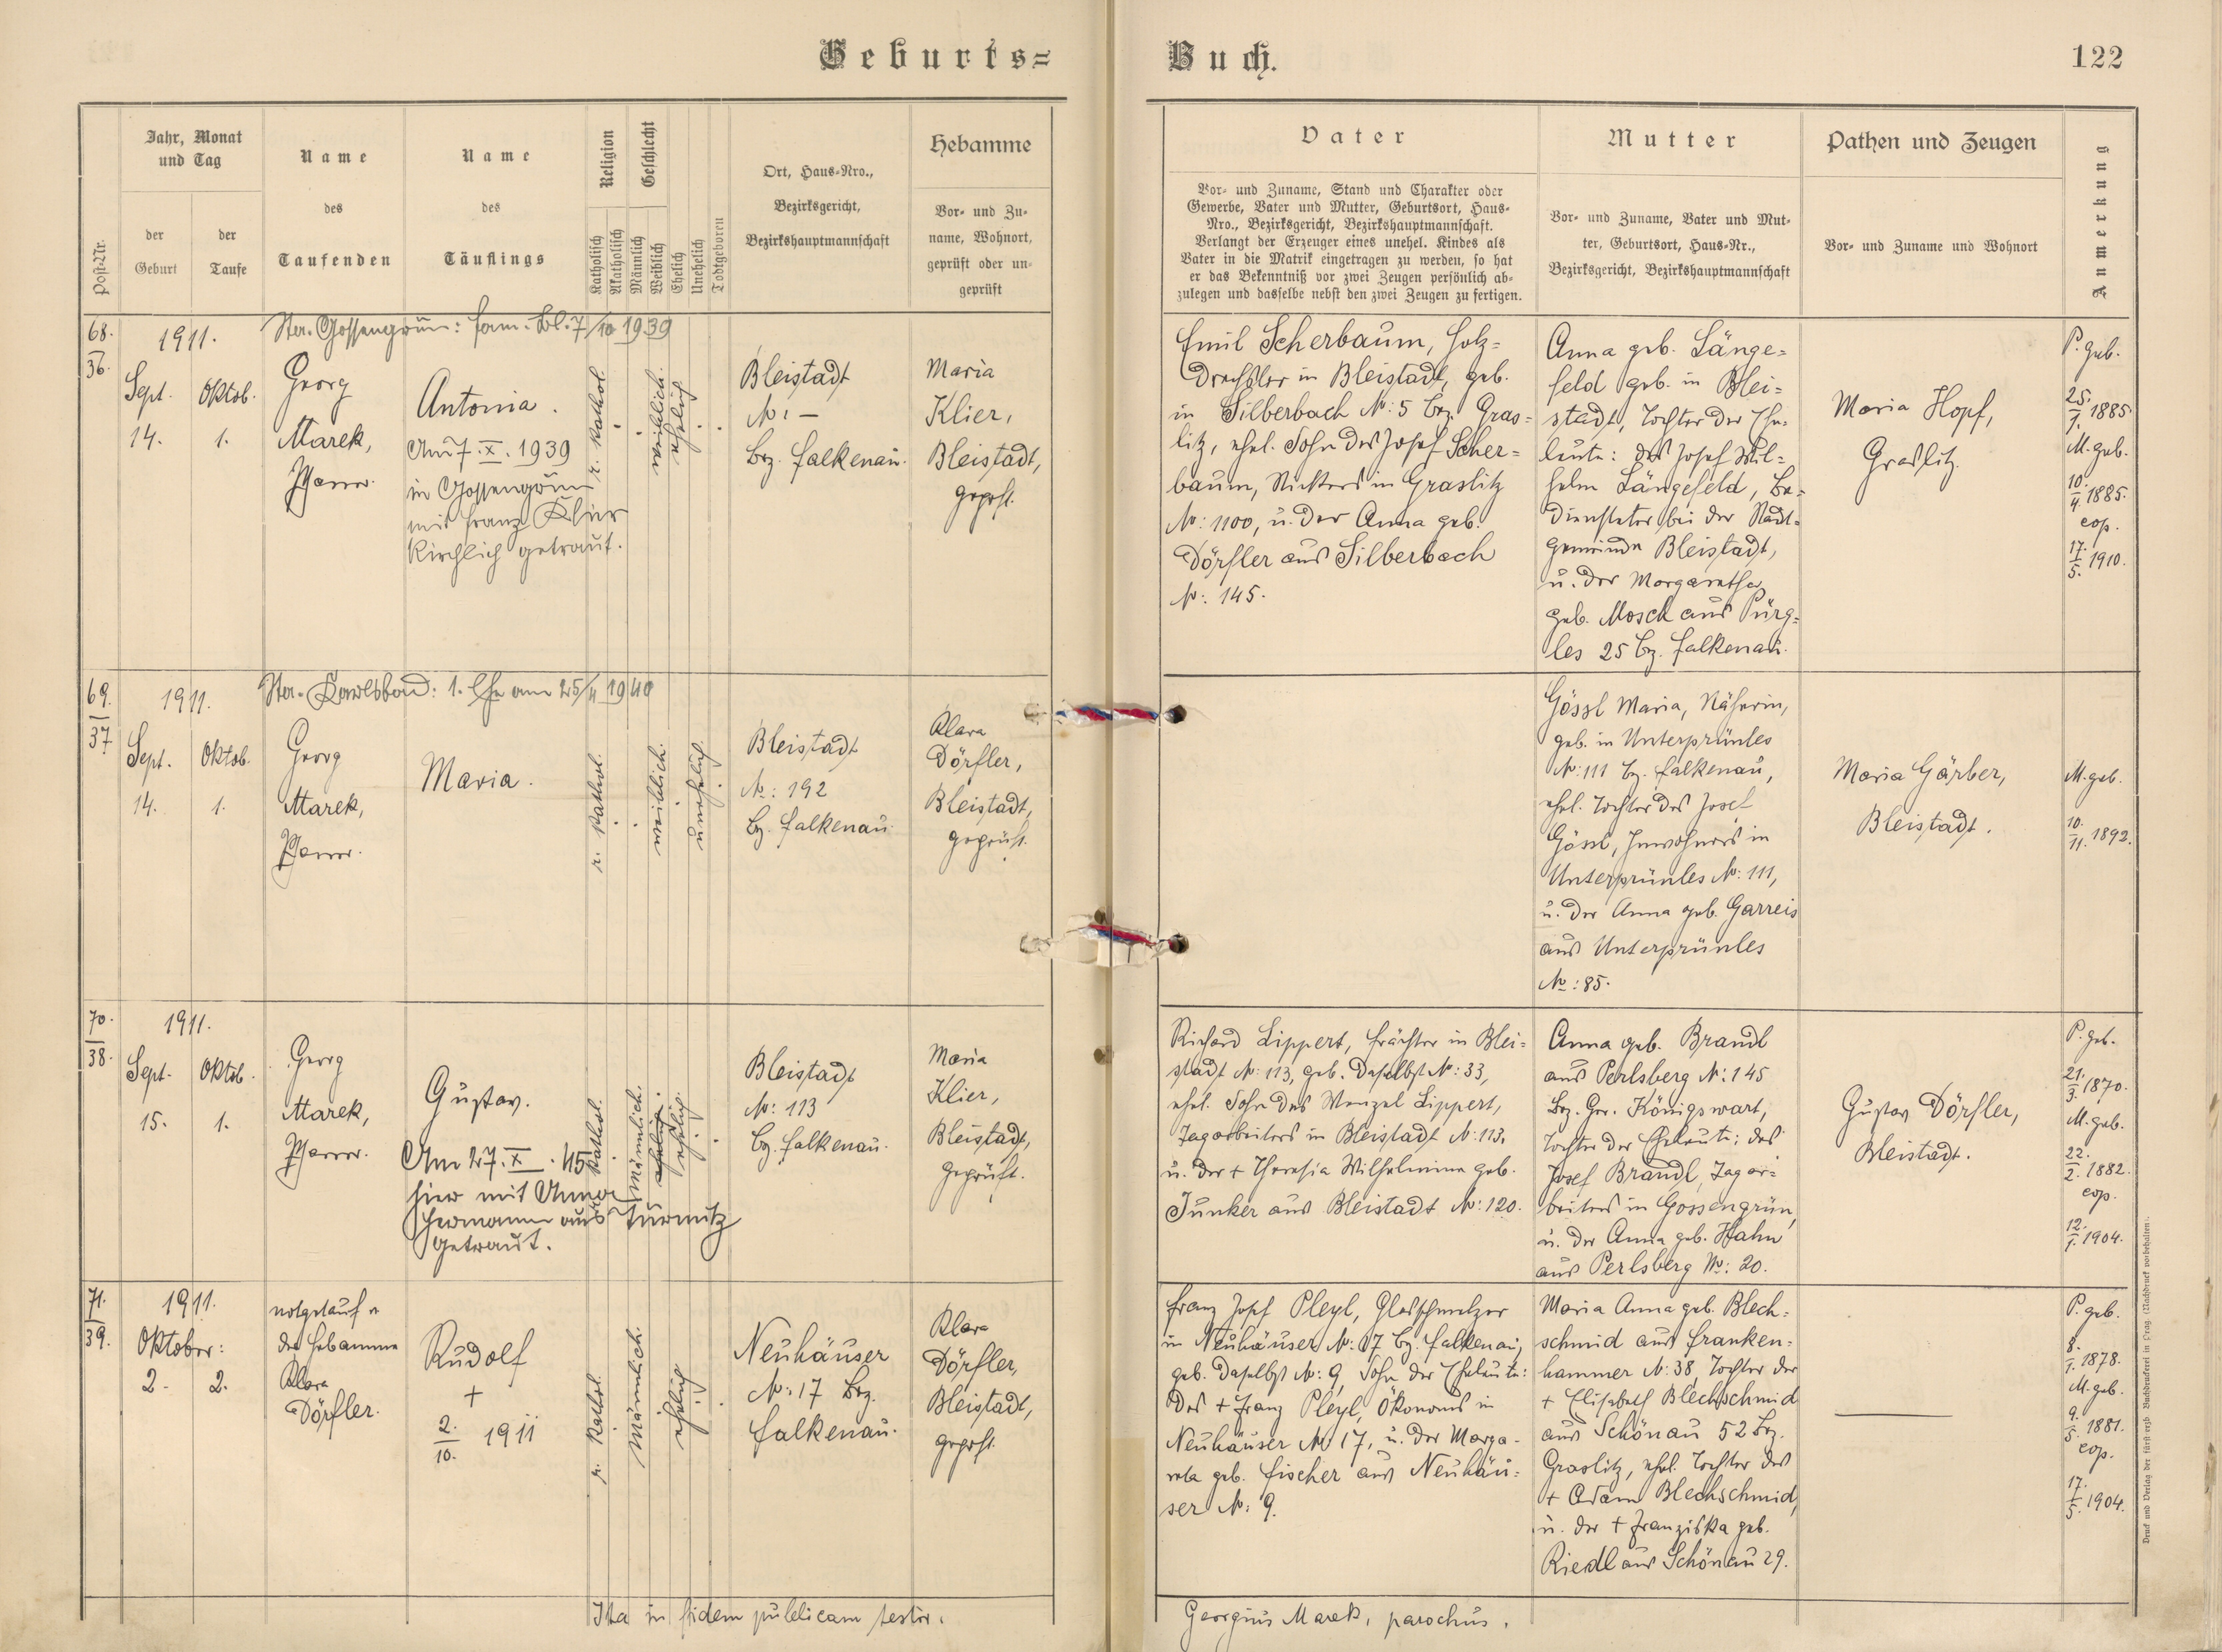 Geburts=
Buch.
122
Post-Nr.
Jahr, Monat
und Tag
der
Geburt
der
Taufe
Name
des
Taufenden
Name
des
Täuflings
Religion
Katholisch
Akatholisch
Geschlecht
Männlich
Weiblich
Ehelich
Unehelich
Todtgeboren
Ort, Haus-Nro.,
Bezirksgericht,
Bezirkshauptmannschaft
Hebamme
Vor- und Zu-
name, Wohnort,
geprüft oder un-
geprüft
Vater
Vor- und Zuname, Stand und Charakter oder
Gewerbe, Vater und Mutter, Geburtsort, Haus-
Nro., Bezirksgericht, Bezirkshauptmannschaft.
Verlangt der Erzeuger eines unehel. Kindes als
Vater in die Matrik eingetragen zu werden, so hat
er das Bekenntniß vor zwei Zeugen persönlich ab-
zulegen und dasselbe nebst den zwei Zeugen zu fertigen.
Mutter
Vor- und Zuname, Vater und Mut-
ter, Geburtsort, Haus-Nr.,
Bezirksgericht, Bezirkshauptmannschaft
Pathen und Zeugen
Vor- und Zuname und Wohnort
Anmerkung
68.
36.
1911.
Sept.
14.
Oktob.
1.
Gossengrün: fam. Bl. 7/10 1939
Georg
Marek,
Pfarrer.
Antonia.
Am 7. X. 1939
in Gossengrün
mit Franz Klier
kirchlich getraut.
r. kathol.
weiblich.
ehelich
Bleistadt
N: —
Bez. Falkenau.
Maria
Klier,
Bleistadt,
geprft.
Emil Scherbaum, Holz=
drechsler in Bleistadt, geb.
in Silberbach N: 5 Bez. Gras=
litz, ehel. Sohn des Josef Scher=
baum, in Graslitz
N: 1100, u. der Anna geb.
Dörfler aus Silberbach
N: 145.
Anna geb. Länge=
feld geb. in Blei=
stadt, Tochter der Ehe=
leute: des Josef Wil=
helm Längefeld, Be=
diensteter bei der Stadt=
gemeinde Bleistadt,
u. der Margaretha
geb. Mosch aus Pürg=
les 25 Bz. Falkenau.
Maria Hopf,
Graslitz.
P. geb.
25.
7. 1885
M. geb.
10.
4. 1885.
cop.
17.
5. 1910.
69.
37
1911.
Sept.
14.
Oktob.
1.
Karlsbad: 1. Ehe am 25/4 1940
Georg
Marek,
Pfarrer.
Maria.
r. kathol.
weiblich.
unehelich.
Bleistadt
N: 192
Bz. Falkenau.
Klara
Dörfler,
Bleistadt,
geprüft.
Gössl Maria, Näherin,
geb. in Unterprünles
N: 111 Bz. Falkenau,
ehel. Tochter des Josef
Gössl, Inwohners in
Unterprünles N: 111,
u. der Anna geb. Garreis
aus Unterprünles
N: 85.
Maria Gärber,
Bleistadt.
M. geb.
10.
11. 1892.
70.
38.
1911.
Sept.
15.
Oktob.
1.
Georg
Marek,
Pfarrer.
Gustav.
Am 27. X. 45
hier mit Anna
Hermann aus Türmitz
getraut.
r. kathol.
männlich.
ehelich.
Bleistadt
N: 113
Bz. Falkenau.
Maria
Klier,
Bleistadt,
geprüft.
Richard Lippert, Frächter in Blei=
stadt N: 113, geb. daselbst N: 33,
ehel. Sohn des Wenzel Lippert,
Tagarbeiters in Bleistadt N: 113,
u. der + Theresia Wilhelmine geb.
Junker aus Bleistadt N: 120.
Anna geb. Brandl
aus Perlsberg N: 145
Bez. Ger. Königswart,
Tochter der Eheleute: des
Josef Brandl, Tagar=
beiters in Gossengrün,
u. der Anna geb. Hahn
aus Perlsberg N: 20.
Gustav Dörfler,
Bleistadt.
P. geb.
21.
3. 1870.
M. geb.
22.
2. 1882.
cop.
12.
1. 1904.
71.
39.
1911.
Oktober:
2.
2.
notgetauft v
der Hebamme
Klara
Dörfler.
Rudolf
+
2.
10. 1911
r. kathol.
männlich.
ehelich
Neuhäuser
N: 17 Bez.
Falkenau.
Klara
Dörfler,
Bleistadt,
geprft.
Franz Josef Pleyl, Glasschmelzer
in Neuhäuser N: 17 Bz. Falkenau,
geb. daselbst N: 9, Sohn der Eheleute:
des + Franz Pleyl, Ökonoms in
Neuhäuser N: 17, u. der Marga-
reta geb. Fischer aus Neuhäu=
ser N: 9.
Maria Anna geb. Blech=
schmid aus Franken=
hammer N: 38, Tochter der
+ Elisabeth Blechschmid
aus Schönau 52 Bez.
Graslitz, ehel. Tochter des
+ Adam Blechschmid,
u. der + Franziska geb.
Riedl aus Schönau 29.
P. geb.
8.
1. 1878.
M. geb.
9.
5. 1881.
cop.
17.
5. 1904.
Ita in fidem publicam testor.
Georgius Marek, parochus.
Druck und Verlag der fürst-erzb. Buchdruckerei in Prag. (Nachdruck vorbehalten).